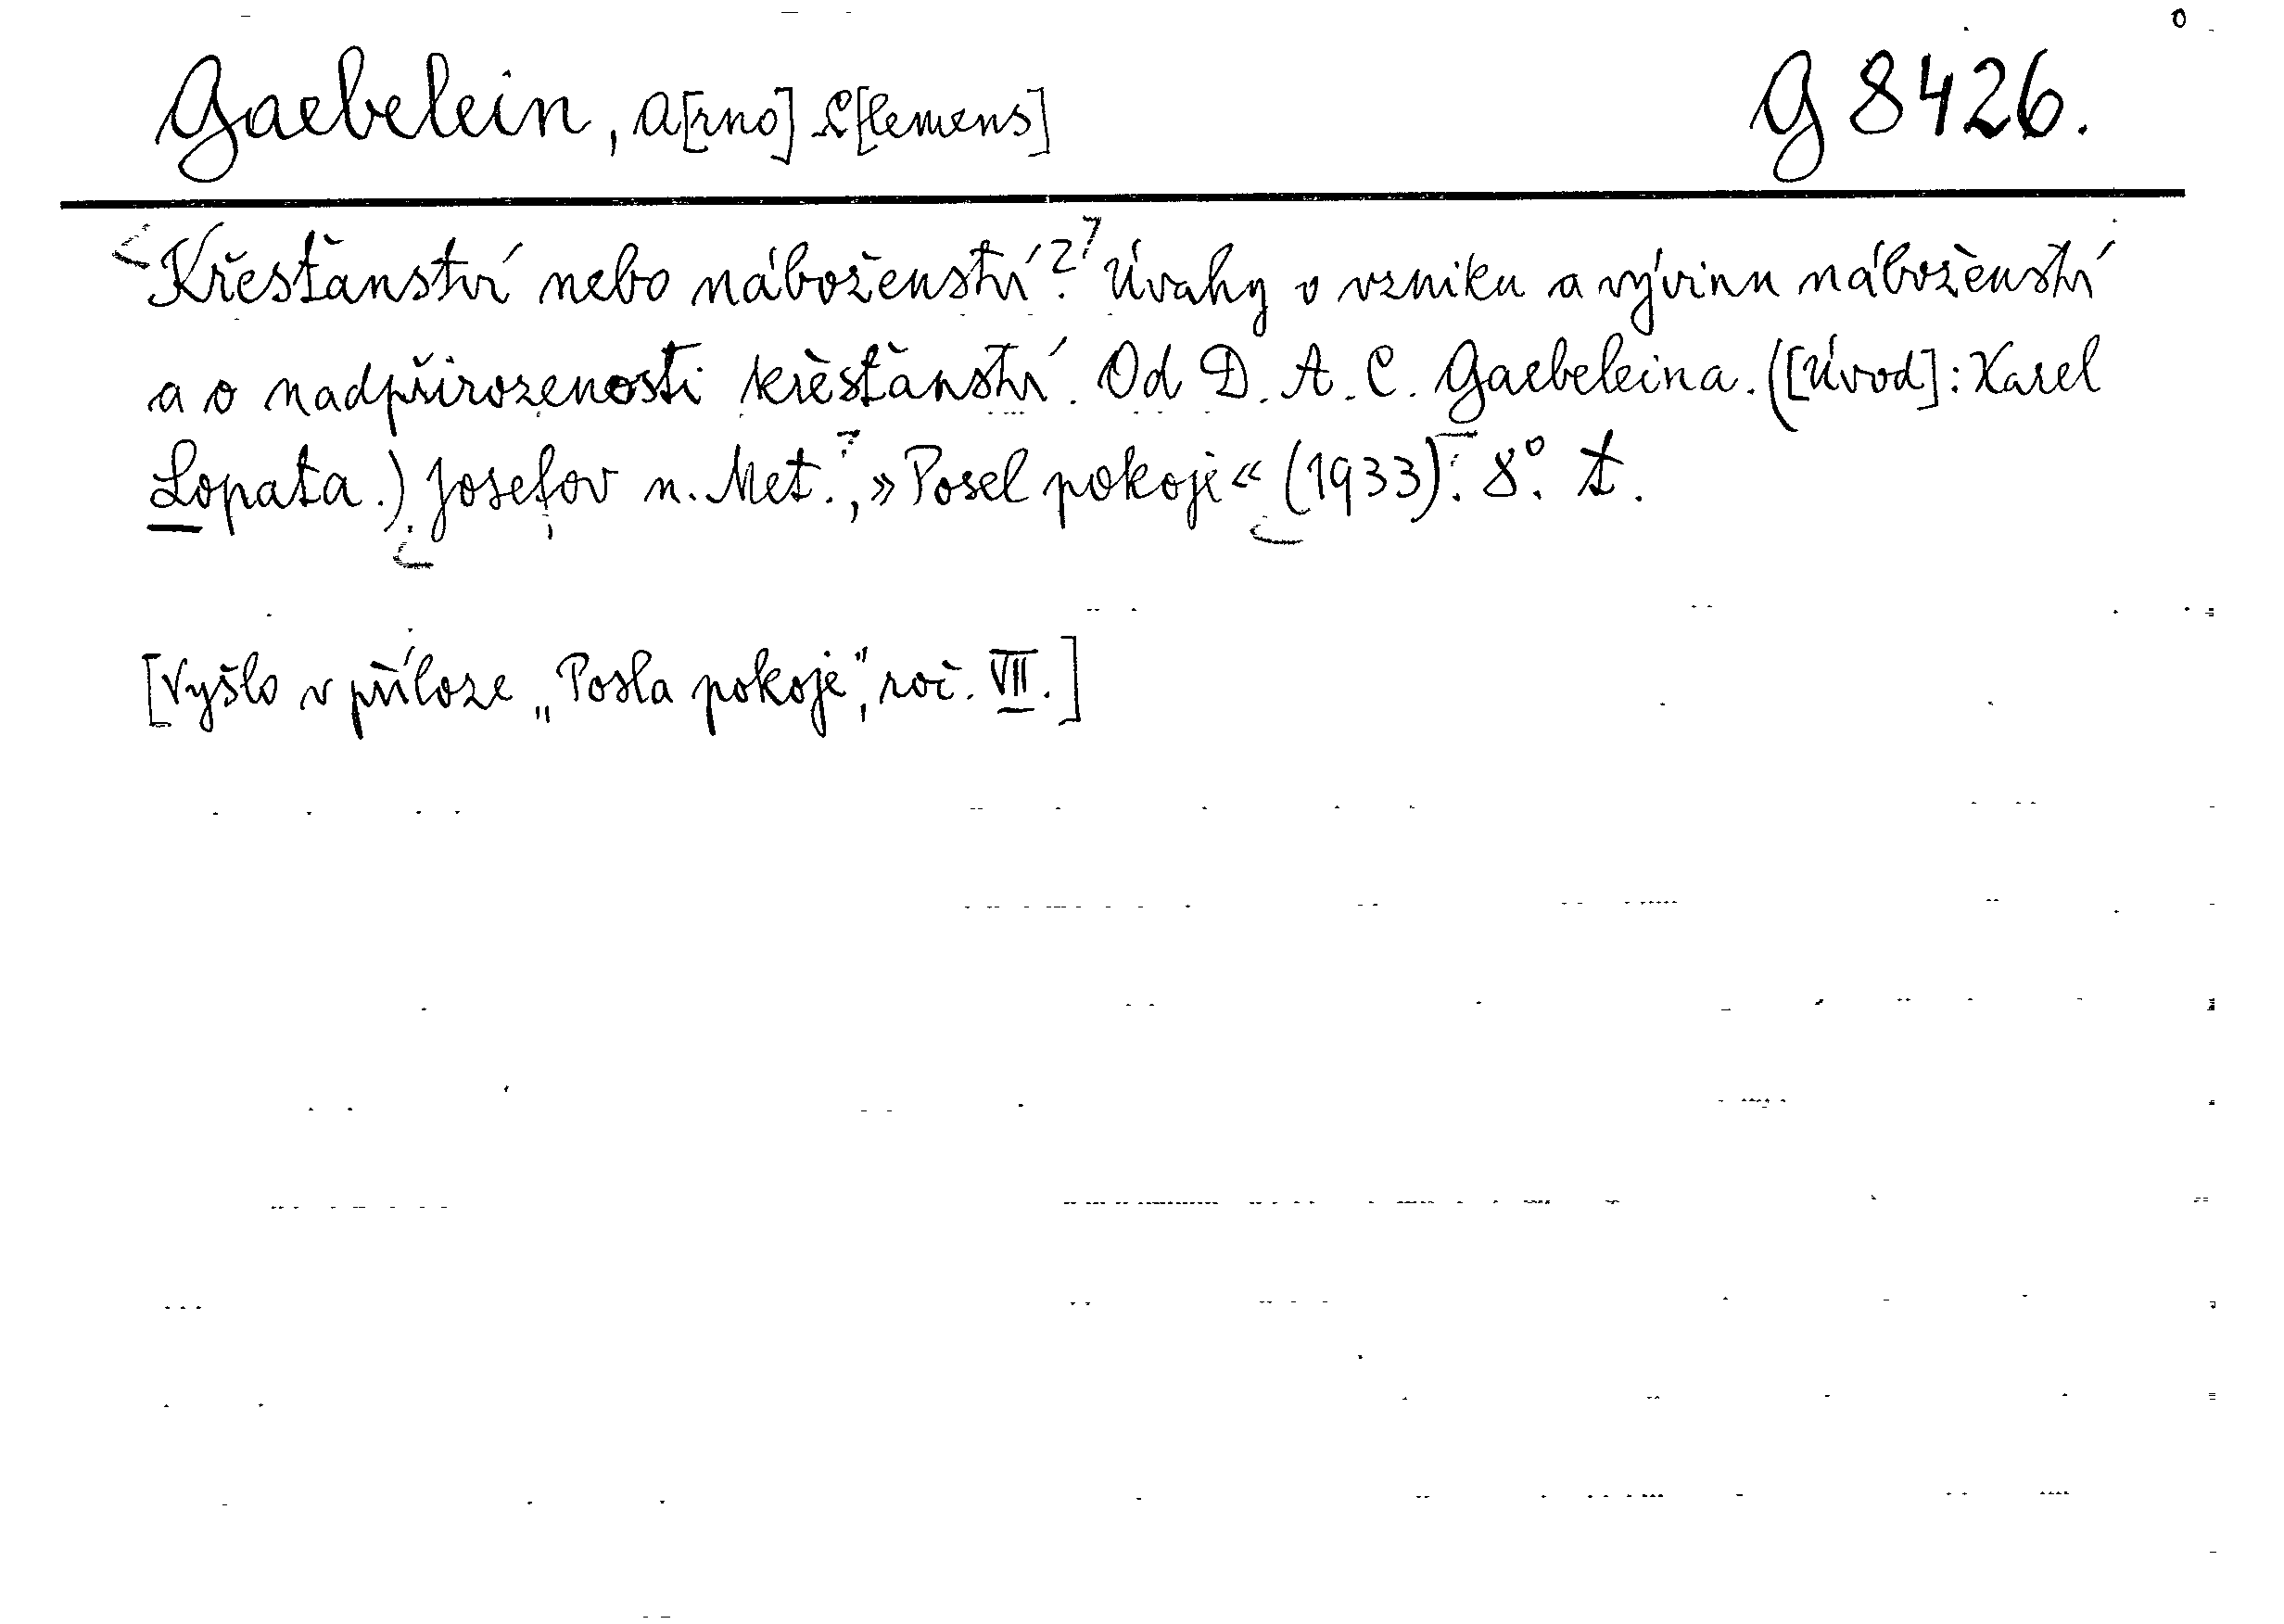 Gaebelein, A[rno] C[lemens] G 8426.
Křesťanství nebo náboženství? Úvahy o vzniku a vývinu náboženství
a o nadpřirozenosti křesťanství. Od D. A. C. Gaebeleina. ([Úvod]: Karel
Lopata.) Josefov n. Met., »Posel pokoje« (1933). 8°. t.
[Vyšlo v příloze „Posla pokoje", roč. VII.]